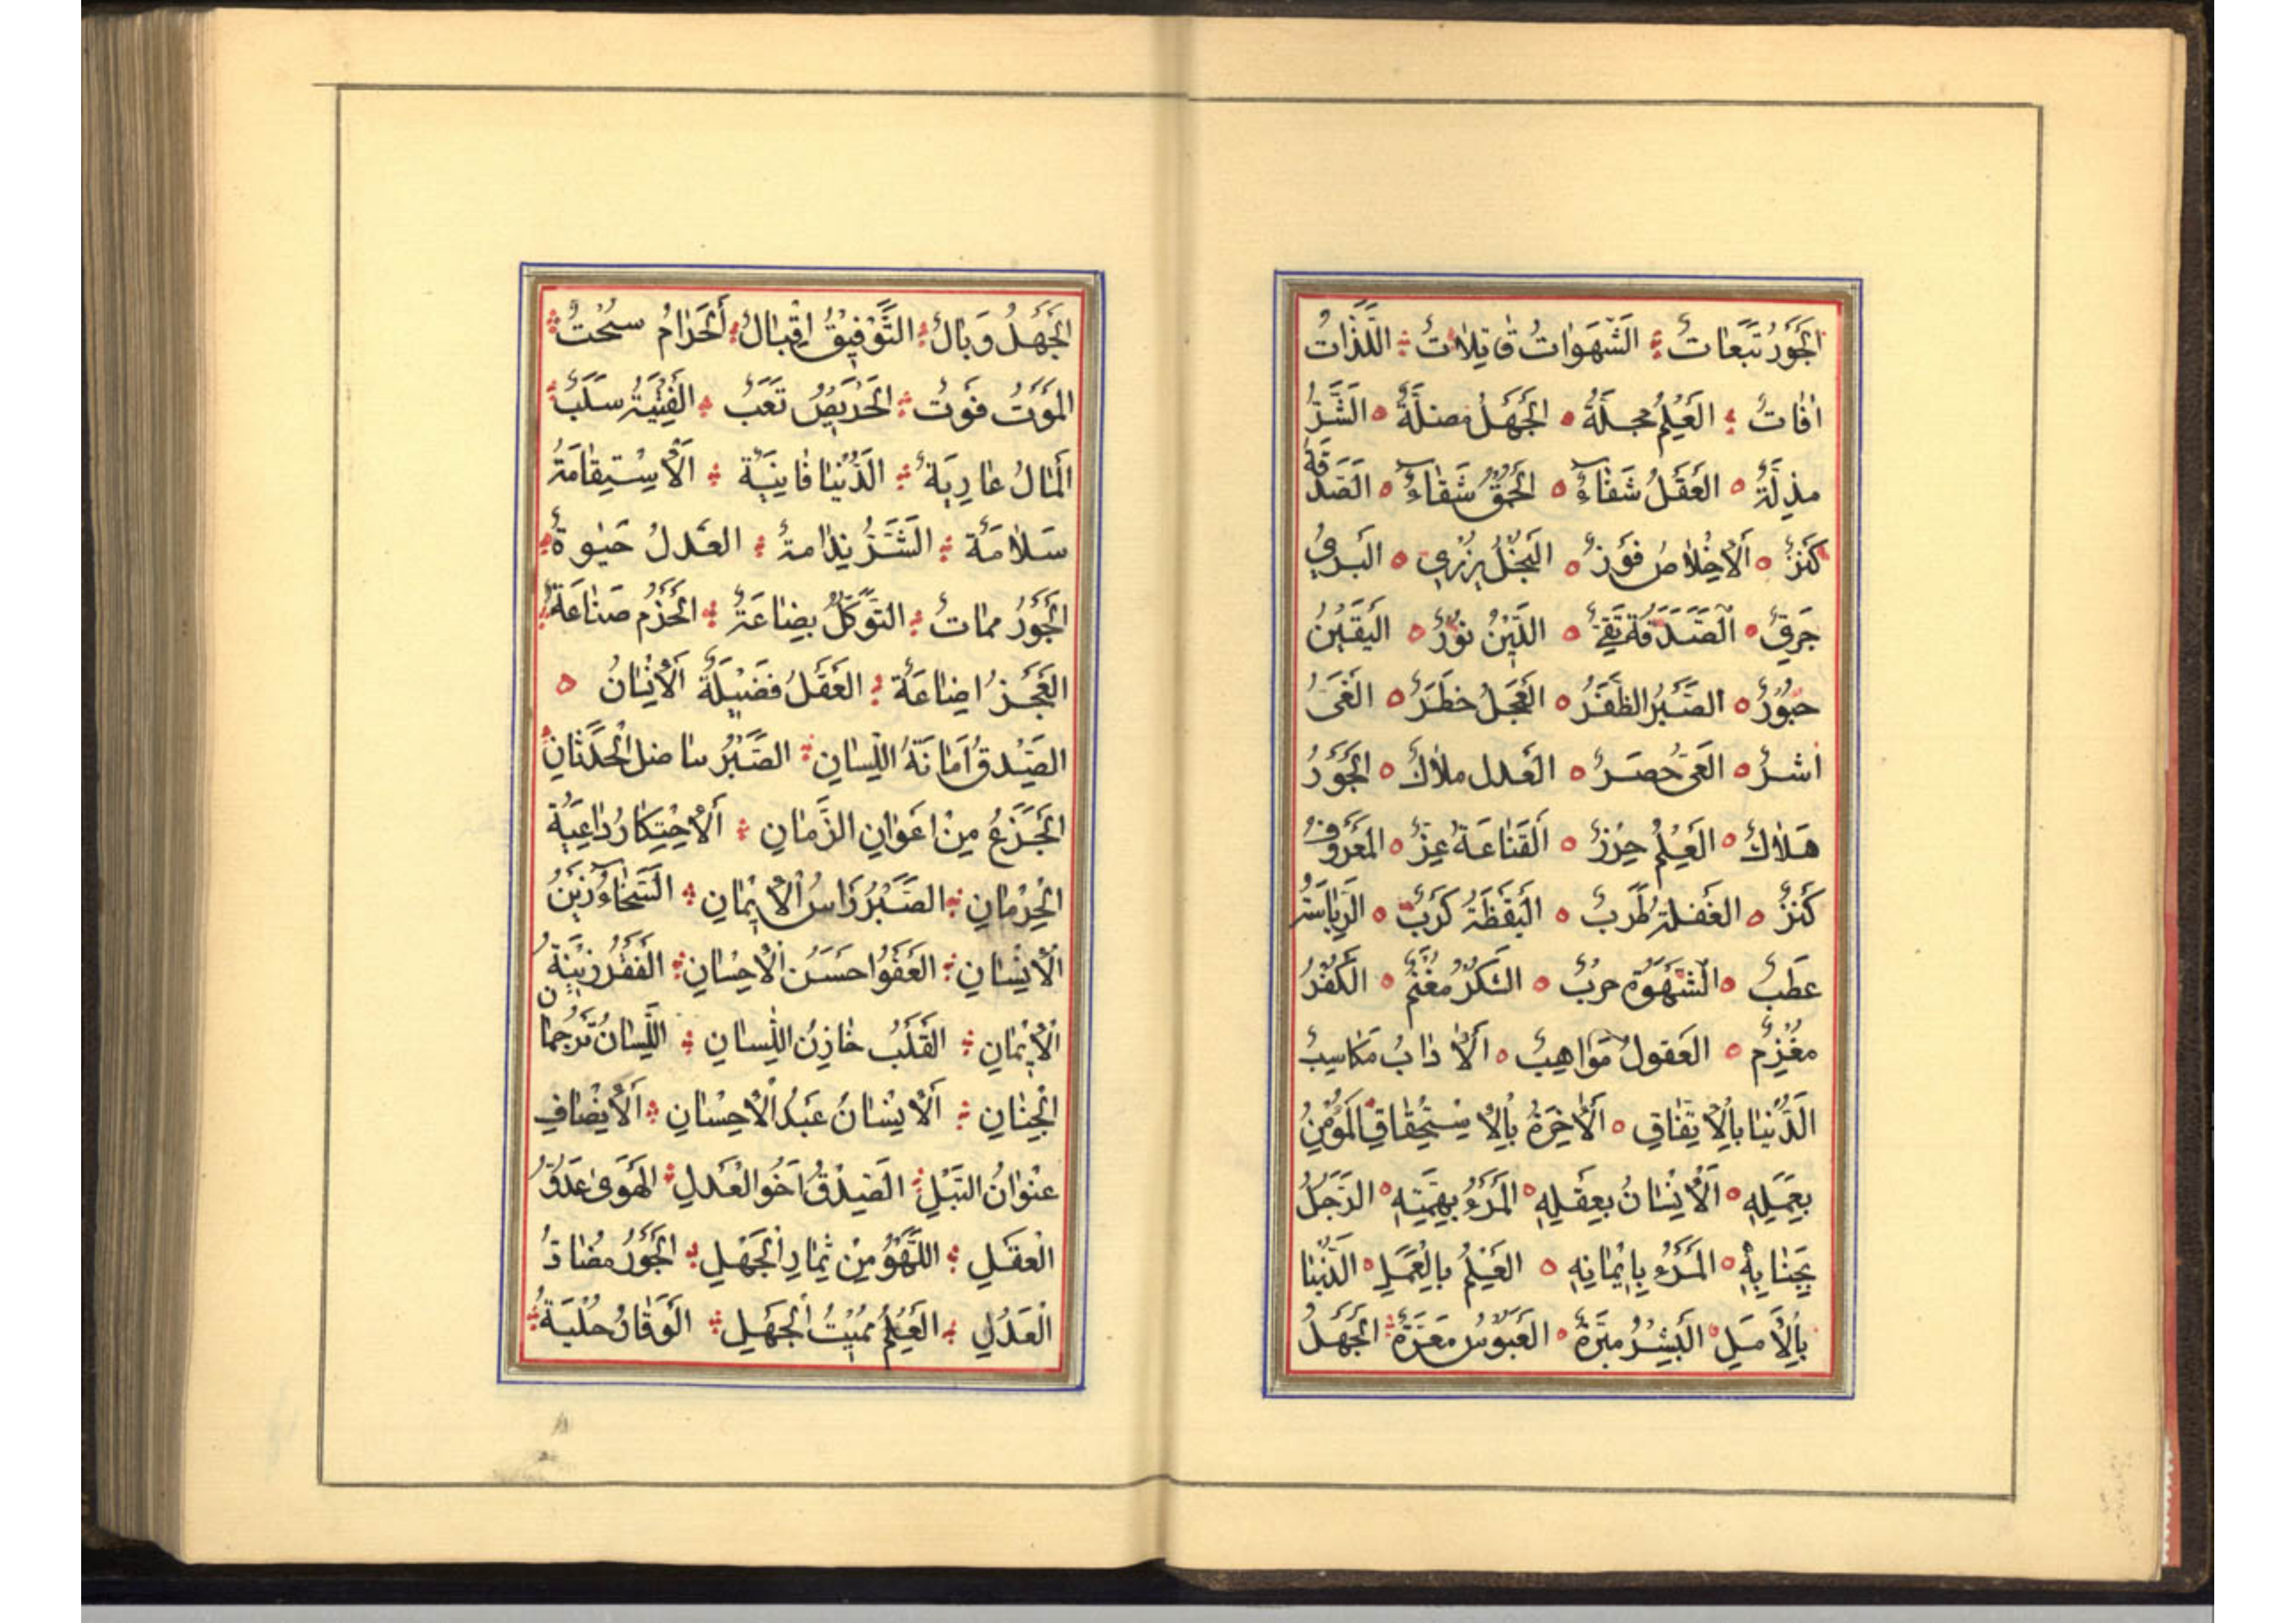 الجَوَرُ تَبَعاتٌ الشَّهَوٰاتُ قٰاتِلاٰتٌ اللَّذّٰاتُ
اٰفٰاتٌ العِلْمُ مجلَّةٌ الجَهَلُ مضلَّةٌ الشَّرُّ
مذلَّةٌ العَقَلُ شَفٰاءٌ الحُمْقُ شَقٰاءٌ الصَدَقَةُ
كَنزٌ اَلاْخِلاٰصُ فَوَزٌ البُخْلُ يزري البري
جَرِيٌ الصَدَقَة تقي الدّينُ نُوْرٌ اليَقيْنُ
حُبُوْرٌ الصَّبْرُ الظَّفَرُ العَجَلُ خطَرٌ الغَىُ
اشرٌ العَىُ حَصرٌ العَدل ملاٰكٌ الجَوَرُ
هَلاٰكٌ العِلْمُ حِرْزٌ اَلقَنٰاعَةُ عِزٌّ المَعَرُوْفُ
كَنزٌ الغَفلَةُ طَرَبٌ اليَقَظَةُ كَرَبٌ الرِيٰاسَتُ
عَطَبٌ الشَهَوَةُ حربٌ الشُكْرُ مغْنَمٌ الكُفْرُ
مغْرمٌ العَقولُ مَوٰاهِبٌ اَلاْٰدٰابُ مَكٰاسِبٌ
الدُّنْيٰا بِاْلاِتِّفٰاقِ اَلاْٰخِرَةُ بِاْلاِسْتِحْقٰاقِ المُؤْمِنُ
بِعَمَلِهِ اَلاْنْسٰانُ بِعَقلِهِ المَرَءُ بِهِمَّتِهِ الرَجَلُ
بِجَنٰابِهِ المَرَءُ بِاِيْمٰانِهِ العِلْمُ بِالْعَمَلِ الدُّنْيٰا
بِاْلاَمَلِ البِشْرُ مبَرَّةٌ العَبَوُسُ مَعَرَّةٌ الجَهَلُ
الجَهَلُ وَبٰالٌ التَّوْفِيْقُ اِقْبٰالٌ الحَرٰامُ سُحْتٌ
المَوَتُ فَوَتٌ الحَرَيِصُ تَعَبٌ الفِتْيَةُ سَلَبٌ
اَلمٰالُ عٰارِيَةٌ الدُّنْيٰا فٰانِيَةٌ اَلاْسْتِقٰامَةُ
سَلاٰمَةٌ الشَرُّ نِدٰامةٌ العَدلُ حَيٰوةٌ
الجَوَرُ ممٰاتٌ التَّوَكُّلُ بِضٰاعَةٌ الحَزْمُ صَنٰاعَةٌ
العَجَزُ اضٰاعَةٌ العَقَلُ فَضْيلَةُ اَلاْنْسٰانُ
الصِّدْقُ اَمٰانَةُ اللِّسٰانِ الصَّبْرُ يناضل الْحَدَثٰانِ
الجَزَعُ مِنْ اعَوٰانِ الزَّمٰانِ اَلاْحِتِكٰارُ دٰاعِيَةُ
الْحِرْمٰانِ الصَّبْرُ رَاسُ الاِيْمٰانِ السَّخٰاءُ زَيْنُ
الاِنْسٰانِ العَفَوُ احسَنُ الاْحِسٰانِ الفَقْرُ زِيْنَةُ
الاِيْمٰانِ القَلَبُ خٰازِنُ اللِّسٰانِ اللِّسٰانُ تَرجمٰان
الْجِنٰانِ اَلاِنْسٰانُ عَبَدُ الاْحِسٰانِ اَلاْنْصٰافِ
عِنْوٰانُ النَّبْلِ الصِّدْقُ اَخَوُ الْعَدلِ الهَوَىٰ عَدَوُّ
الْعَقلِ اللَّهْوُ مِنْ ثِمٰارِ الْجَهْلِ الجَوَرُ مُضٰادُ
الْعَدْلِ العِلْمُ مُمِيْتُ الْجَهَلِ الوَقٰارُ حُلْيَةُ